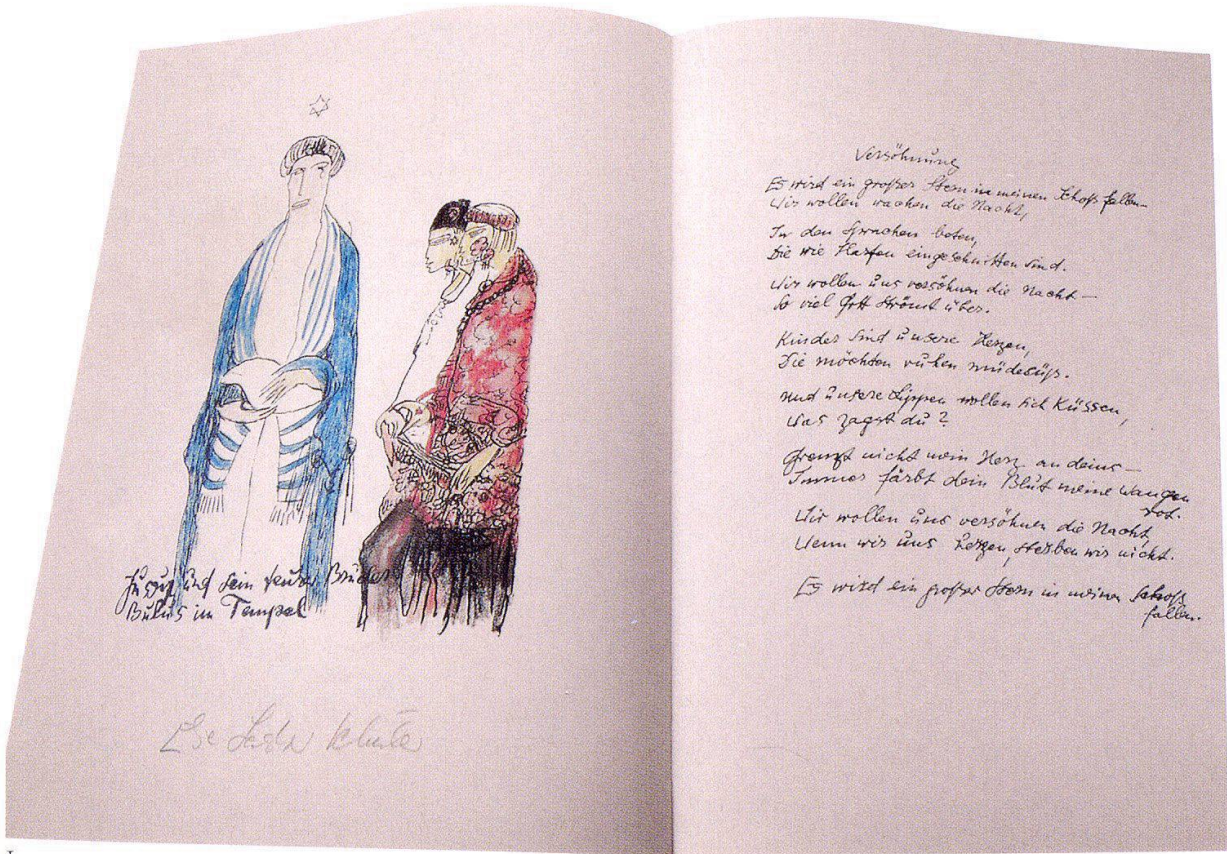 Jussuf und sein teurer Bruder
Bulus im Tempel
Else Lasker Schüler
Versöhnung
Es wird ein großer Stern in meinen Schoß fallen—
Wir wollen wachen die Nacht,
In den Sprachen beten,
Die wie Harfen eingeschnitten sind.
Wir wollen uns versöhnen die Nacht —
So viel Gott strömt über.
Kinder sind unsere Herzen,
Die möchten ruhen müdesüß.
Und unsere Lippen wollen sich küssen,
Was zagst du?
Grenzt nicht mein Herz an deins —
Immer färbt dein Blut meine Wangen
rot.
Wir wollen uns versöhnen die Nacht,
Wenn wir uns herzen, sterben wir nicht.
Es wird ein großer Stern in meinen Schoß
fallen.